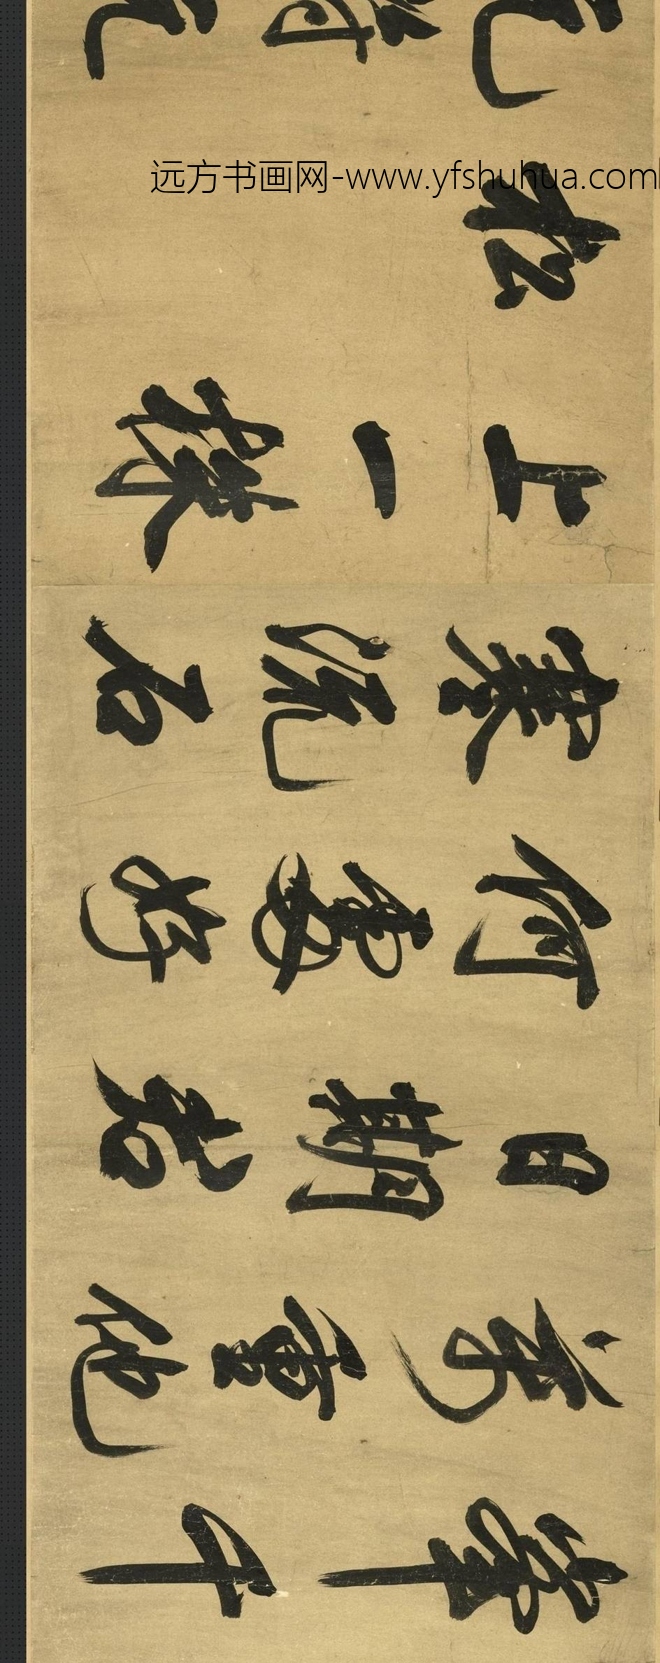 峯千
萬重他
日期君
何處好
寒流石
上一株
松
远方书画网-www.yfshuhua.com